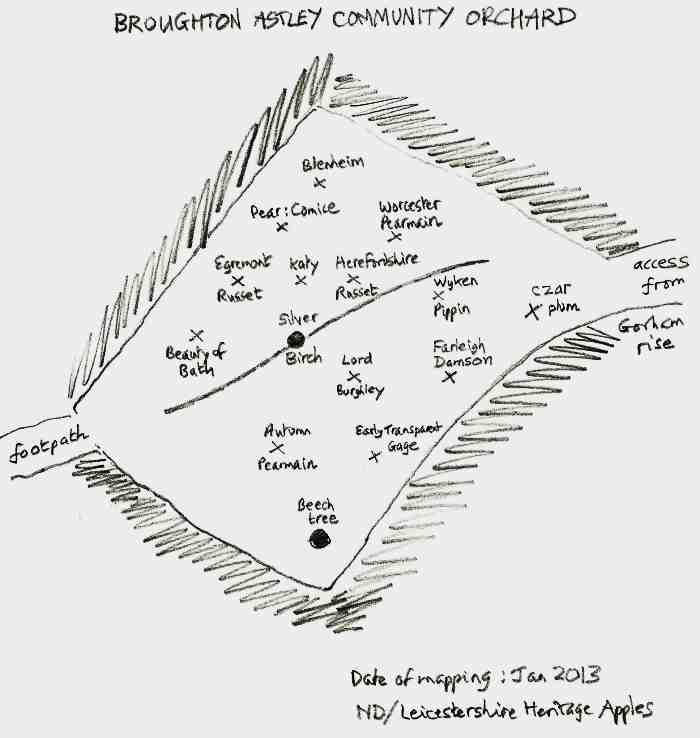 BROUGHTON ASTLEY COMMUNITY ORCHARD
Blenheim
Pear: Comice
Worcester
Pearmain
Egremont
Russet
Katy
Herefordshire
Russet
Wyken
Pippin
CZAR
plum
access
from
Gorham
rise
Silver
Birch
Beauty of
Bath
Lord
Burghley
Farleigh
Damson
footpath
Autumn
Pearmain
Early Transparent
Gage
Beech
tree
Date of mapping : Jan 2013
ND/Leicestershire Heritage Apples